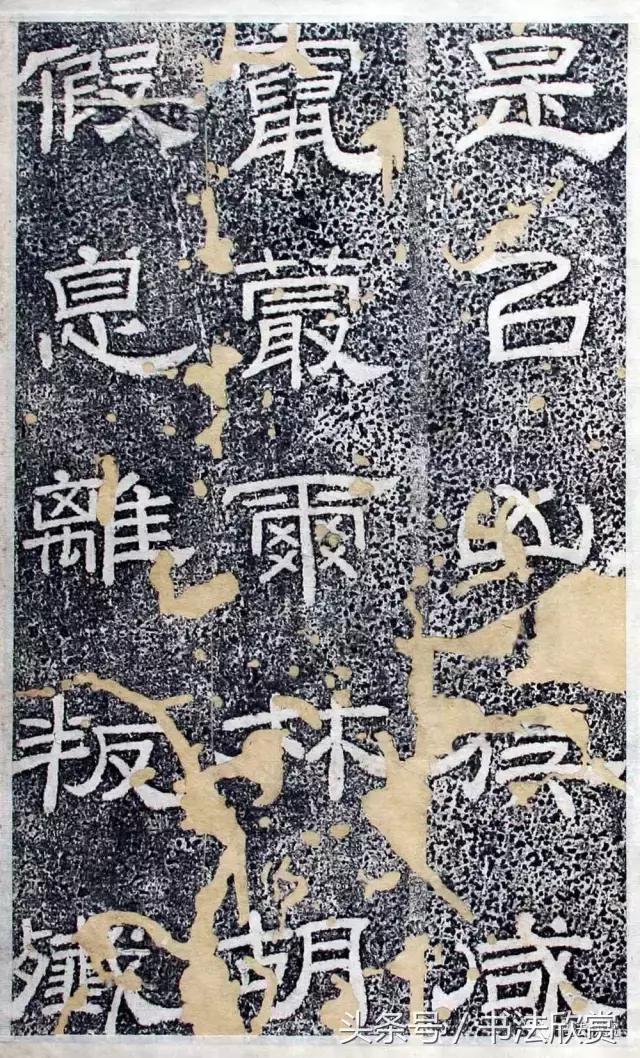 是㠯咸
竄蕞爾林胡
假息離叛殲
头条号/书法欣赏